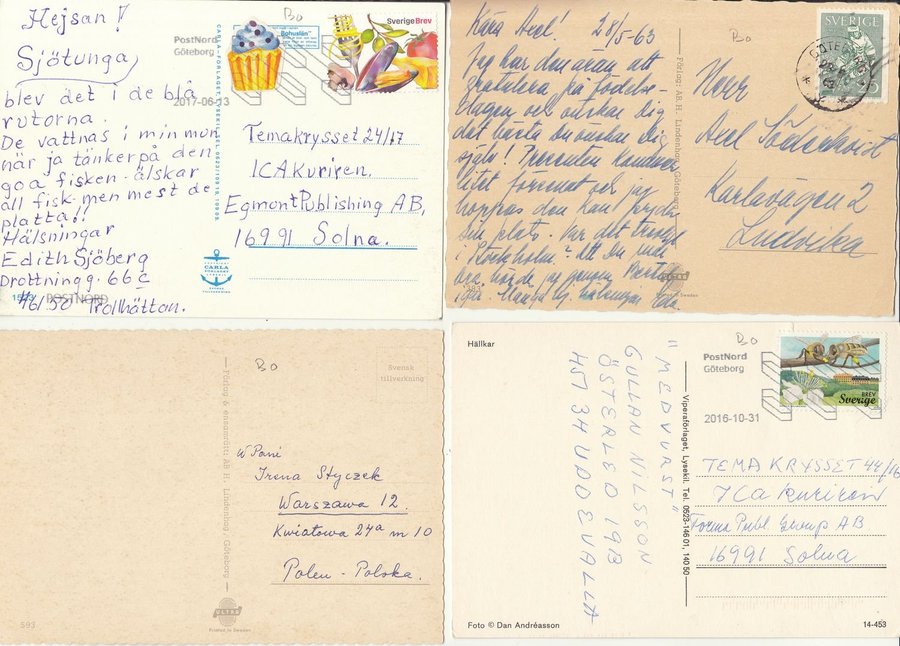 Hejsan!
Sjötunga
blev det i de blå
rutorna.
De vattnas i min mun
när ja tänker på den
goa fisken - älskar
all fisk - men mest de
platta!!
Hälsningar
Edith Sjöberg
Drottningg. 66c
46150 Trollhättan.
POSTNORD
Bo
PostNord
Göteborg
2017-06-13
Bohuslän
Sverige Brev
Temakrysset 24/17
ICA Kuriren.
Egmont Publishing AB,
16991 Solna.
CARLA
Kära Axel! 28/5-63
Jag har den äran att
gratulera på födelse-
dagen och önskar dig
det bästa Du önskar dig
själv! Presenten kanske
litet försenat och jag
hoppas den kan
sin plats. Var det trevligt
i Stockholm? Att Du
jag genom
Förlag: AB. H. Lindenhag, Göteborg
ULTRA
593
Bo
SVERIGE
GÖTEBORG
Herr
Axel Söderkvist
Karlavägen 2
Ludvika
Bo
Svensk
tillverkning
Förlag & ensamrätt: AB H. Lindenhag, Göteborg
ULTRA
Printed in Sweden
593
W Pani
Irena Styczek
Warszawa 12.
Kwiatowa 24a m 10
Polen - Polska.
Hällkar
"MEDVURST"
GULLAN NILSSON
ÖSTERLED 19B
451 34 UDDEVALLA
Viperaförlaget, Lysekil. Tel. 0523-146 01, 140 50
Bo
PostNord
Göteborg
2016-10-31
BREV
Sverige
TEMAKRYSSET 44/16
ICA kuriren
Forma Publ Group AB
16991 Solna
Foto © Dan Andréasson
14-453